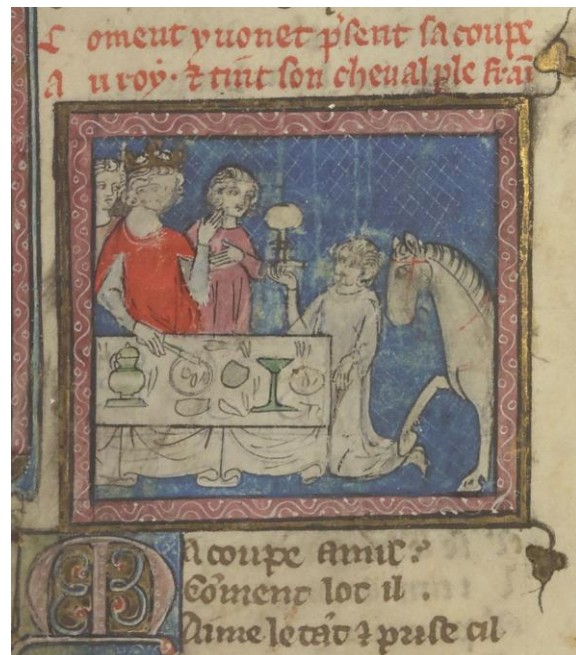 C oment yuonet psent sa coupe
A u roy · ⁊ tint son cheval ple frain
Ma coupe amis ?
Coment lot il .
Aime le tāt ⁊ prise cil